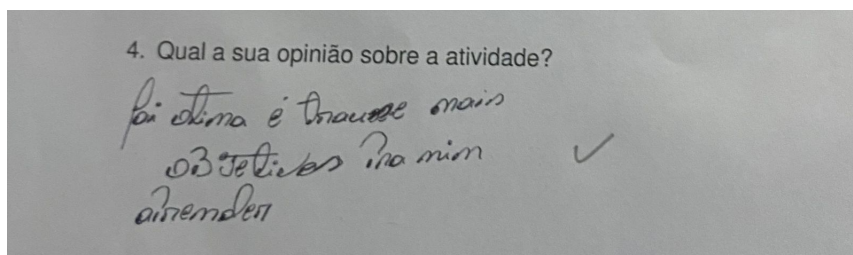 4. Qual a sua opinião sobre a atividade?
foi otima é trousse mais
objetivos pra mim
aprender